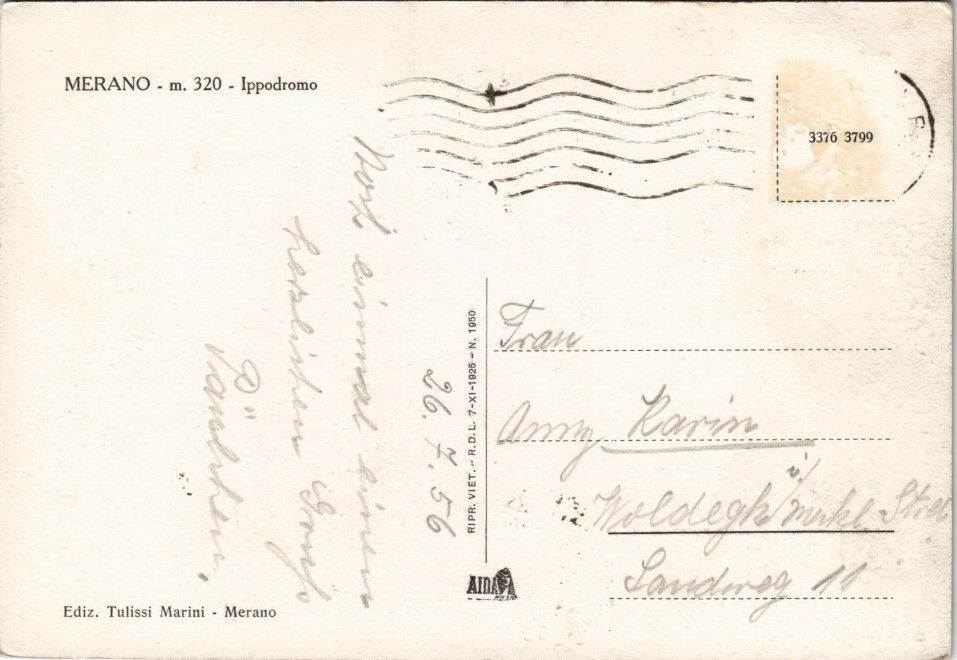 MERANO - m. 320 - Ippodromo
3376 3799
26. 7. 56
Noch einmal einen
herzlichen Gruß
Päulchen.
RIPR. VIET. - R.D.L. 7-XI-1925 - N. 1950
Frau
Anny Karin
Woldegk i/ Meckl.-Strel
Sandweg 11
AIDA
MILANO
Ediz. Tulissi Marini - Merano